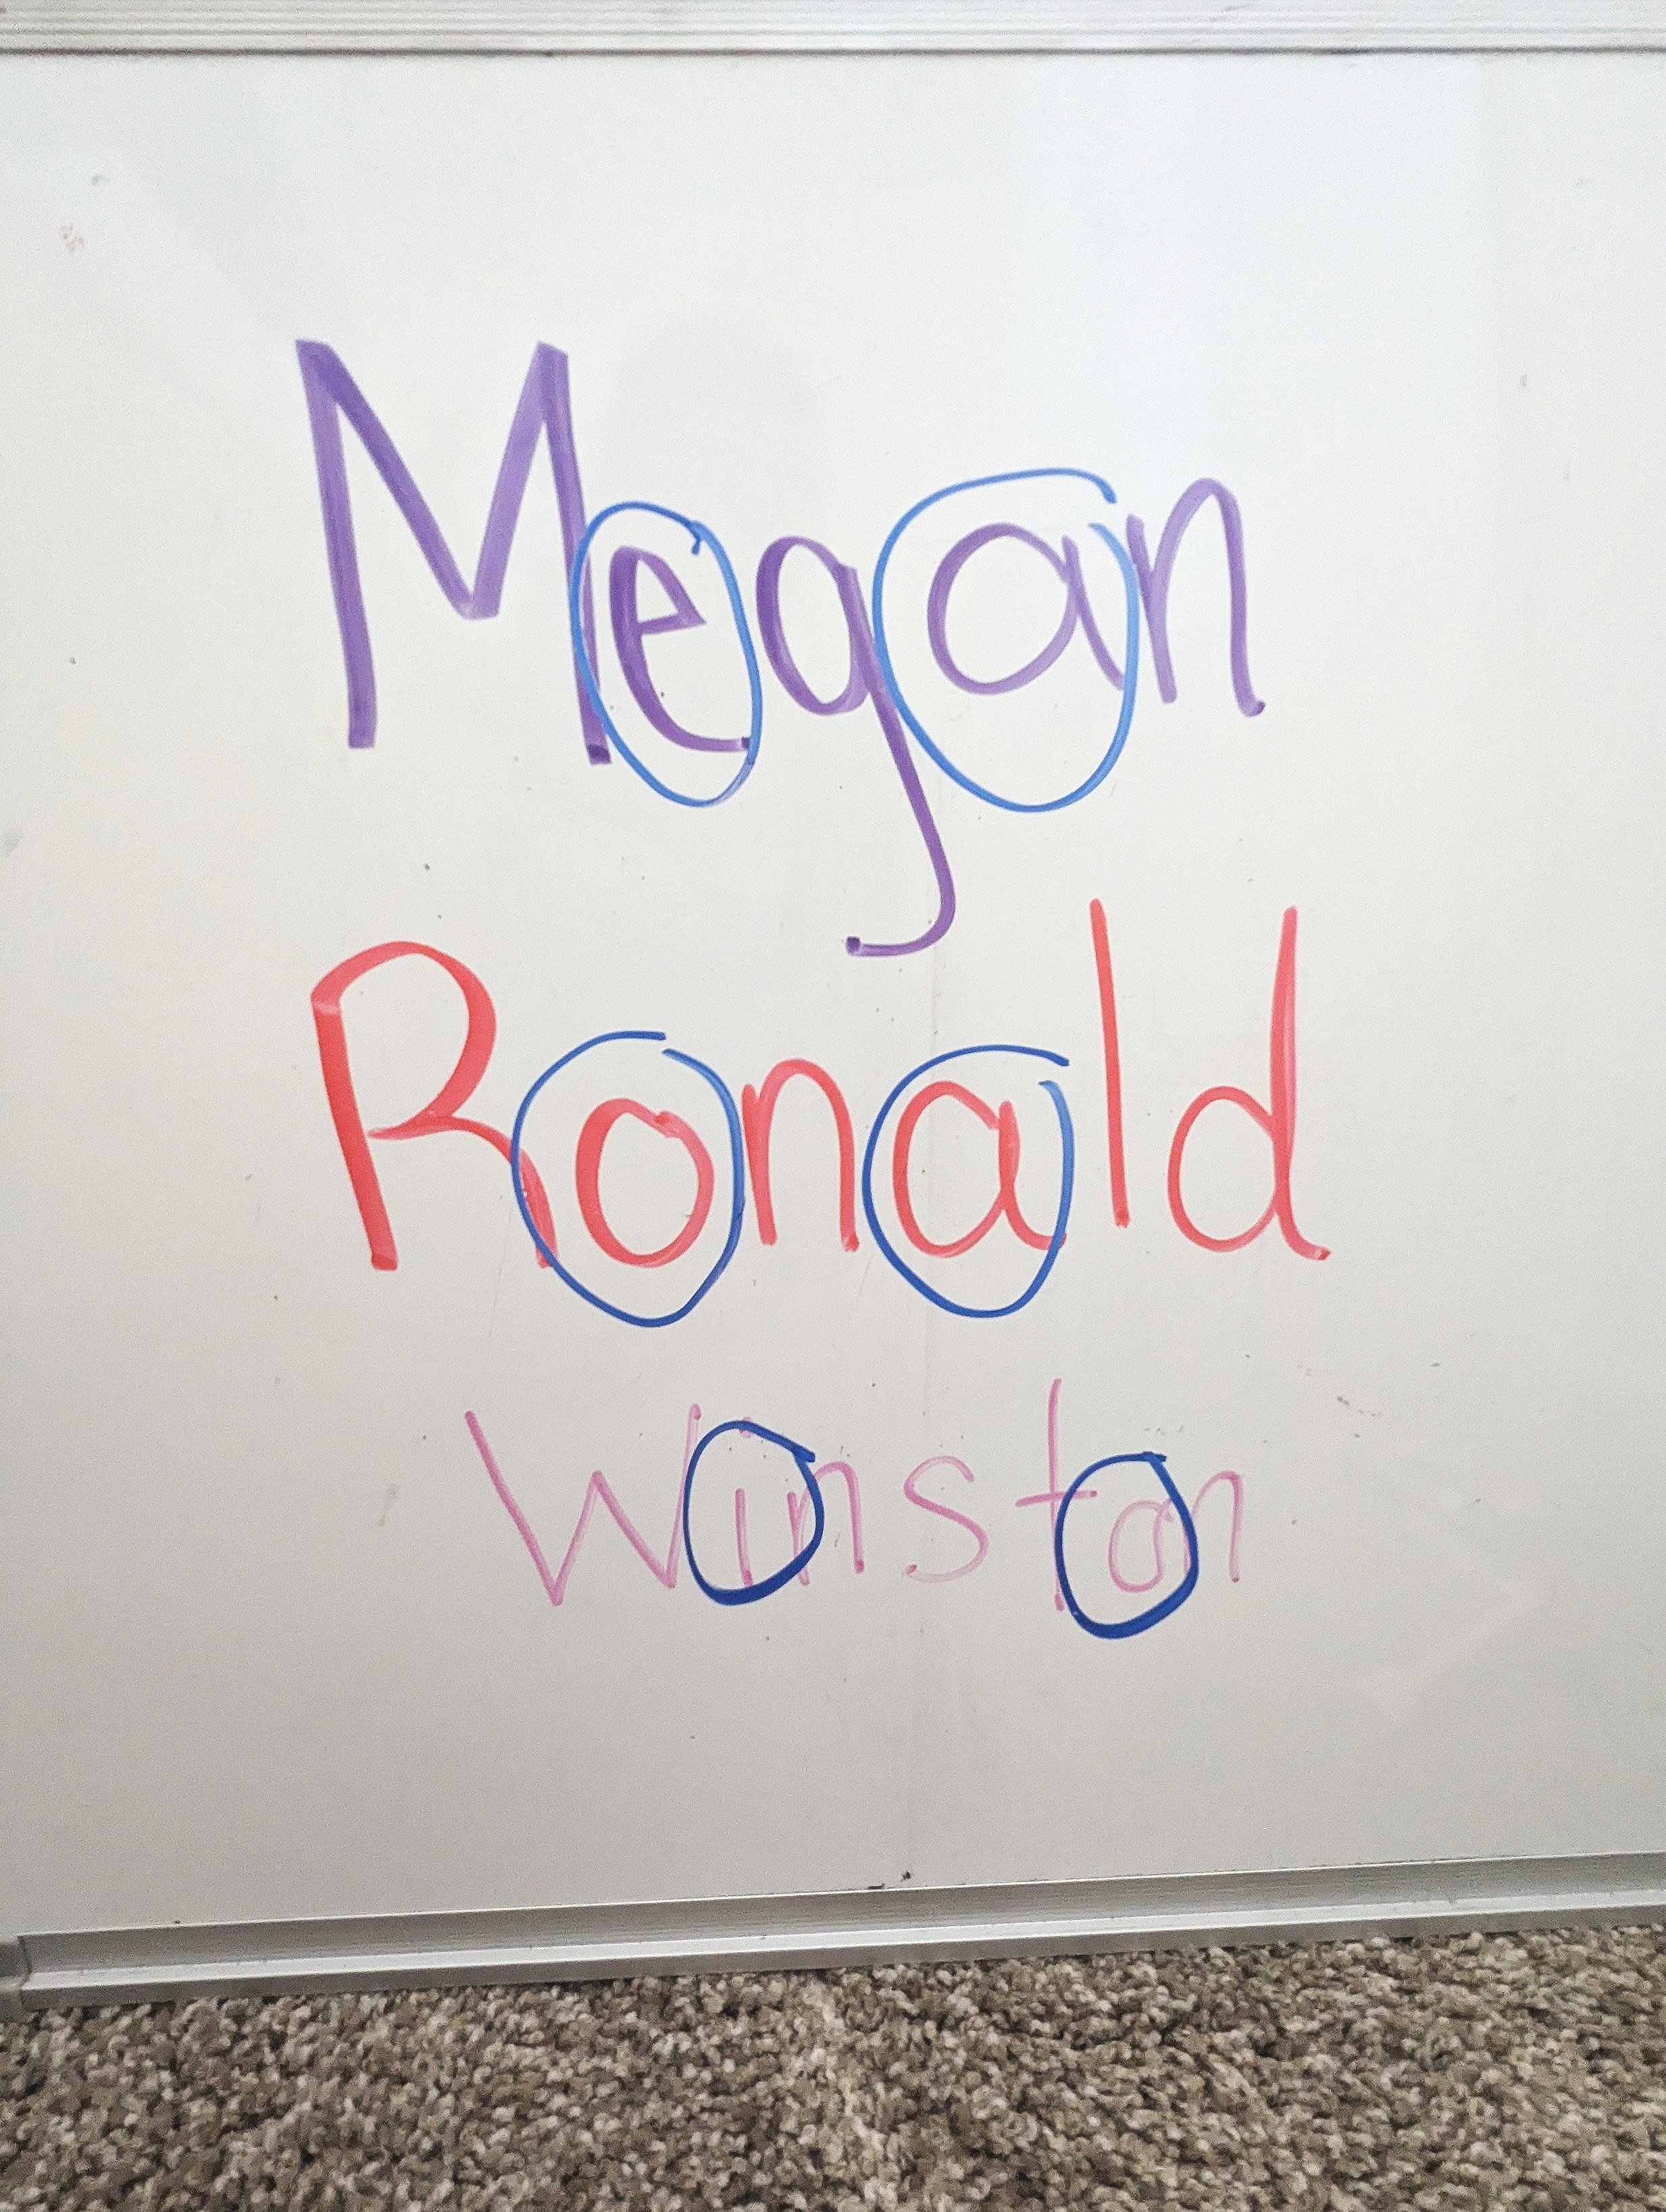 Megan
Ronald
Winston